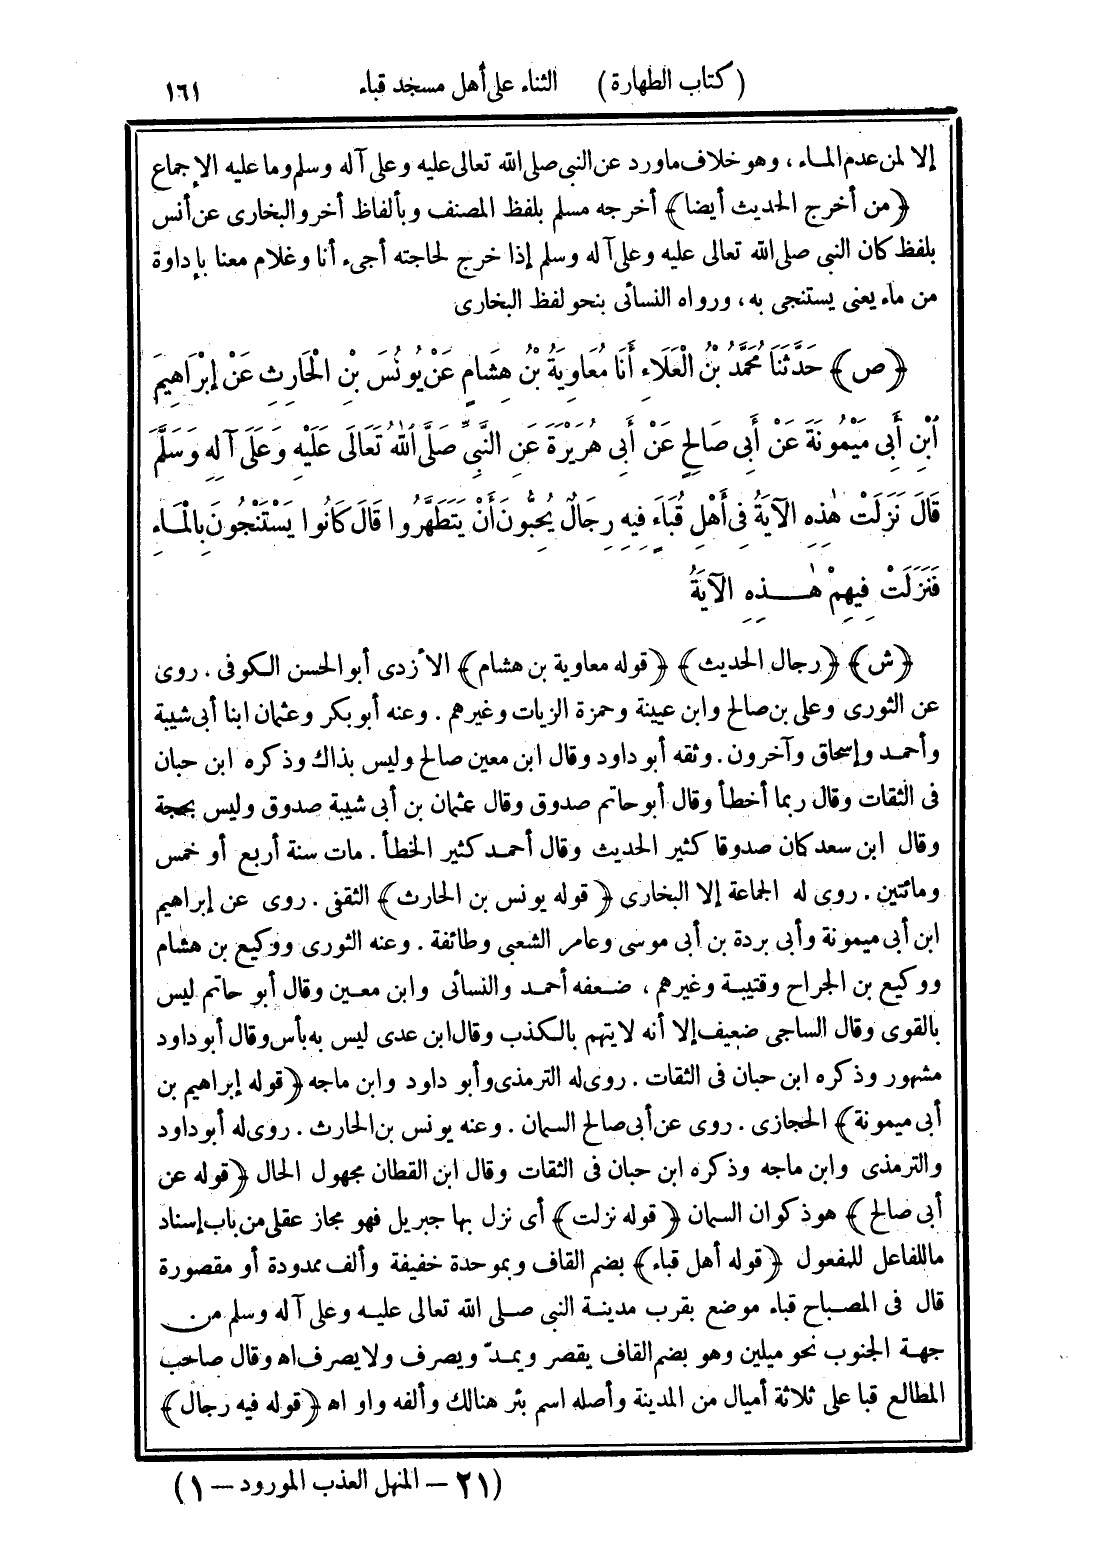 (كتاب الطهارة) الثناء على أهل مسجد قباء ١٦١
إلا لمن عدم المـاء ، وهو خلاف ماورد عن النبى صلى الله تعالى عليه وعلى آله وسلم وما عليه الإجماع
﴿من أخرج الحديث أيضا﴾ أخرجه مسلم بلفظ المصنف وبألفاظ أخر والبخارى عن أنس
بلفظ كان النبى صلى الله تعالى عليه وعلى آله وسلم إذا خرج لحاجته أجىء أنا وغلام معنا بإداوة
من ماء يعنى يستنجى به ، ورواه النسائى بنحو لفظ البخارى
﴿ص﴾ حَدَّثَنَا مُحَمَّدُ بْنُ الْعَلَاءِ أَنَا مُعَاوِيَةُ بْنُ هِشَامٍ عَنْ يُونُسَ بْنِ الْحَارِثِ عَنْ إِبْرَاهِيمَ
ابْنِ أَبِى مَيْمُونَةَ عَنْ أَبِى صَالِحٍ عَنْ أَبِى هُرَيْرَةَ عَنِ النَّبِىِّ صَلَّى اللهُ تَعَالَى عَلَيْهِ وَعَلَى آلِهِ وَسَلَّمَ
قَالَ نَزَلَتْ هٰذِهِ الآيَةُ فِى أَهْلِ قُبَاءَ فِيهِ رِجَالٌ يُحِبُّونَ أَنْ يَتَطَهَّرُوا قَالَ كَانُوا يَسْتَنْجُونَ بِالْمَاءِ
فَنَزَلَتْ فِيهِمْ هٰـــذِهِ الآيَةُ
﴿ش﴾ ﴿رجال الحديث﴾ ﴿قوله معاوية بن هشام﴾ الأزدى أبو الحسن الكوفى . روى
عن الثورى وعلى بن صالح وابن عيينة وحمزة الزيات وغيرهم . وعنه أبو بكر وعثمان ابنا أبى شيبة
وأحمـد وإسحاق وآخرون . وثقه أبو داود وقال ابن معين صالح وليس بذاك وذكره ابن حبان
فى الثقات وقال ربما أخطأ وقال أبو حاتم صدوق وقال عثمان بن أبى شيبة صدوق وليس بحجة
وقال ابن سعد كان صدوقا كثير الحديث وقال أحمـد كثير الخطأ . مات سنة أربع أو خمس
ومائتين . روى له الجماعة إلا البخارى ﴿قوله يونس بن الحارث﴾ الثقفى . روى عن إبراهيم
ابن أبى ميمونة وأبى بردة بن أبى موسى وعامر الشعبى وطائفة . وعنه الثورى ووكيع بن هشام
ووكيع بن الجراح وقتيبـة وغيرهم ، ضـعفه أحمـد والنسائى وابن معـين وقال أبو حاتم ليس
بالقوى وقال الساجى ضعيف إلا أنه لا يتهم بالكذب وقال ابن عدى ليس به بأس وقال أبو داود
مشهور وذكره ابن حبان فى الثقات . روى له الترمذى وأبو داود وابن ماجه ﴿قوله إبراهيم بن
أبى ميمونة﴾ الحجازى . روى عن أبى صالح السمان . وعنه يونس بن الحارث . روى له أبو داود
والترمذى وابن ماجه وذكره ابن حبان فى الثقات وقال ابن القطان مجهول الحال ﴿قوله عن
أبى صالح﴾ هو ذكوان السمان ﴿قوله نزلت﴾ أى نزل بها جبريل فهو مجاز عقلى من باب إسناد
ما للفاعل للمفعول ﴿قوله أهل قباء﴾ بضم القاف وبموحدة خفيفة وألف ممدودة أو مقصورة
قال فى المصـباح قباء موضع بقرب مدينـة النبى صـلى الله تعالى عليـه وعلى آله وسلم من
جهـة الجنوب نحو ميلين وهو بضم القاف يقصر ويمـدّ ويصرف ولا يصرف اه وقال صاحب
المطالع قبا على ثلاثة أميال من المدينة وأصله اسم بئر هنالك وألفه واو اه ﴿قوله فيه رجال﴾
(٢١ – المنهل العذب المورود – ١)